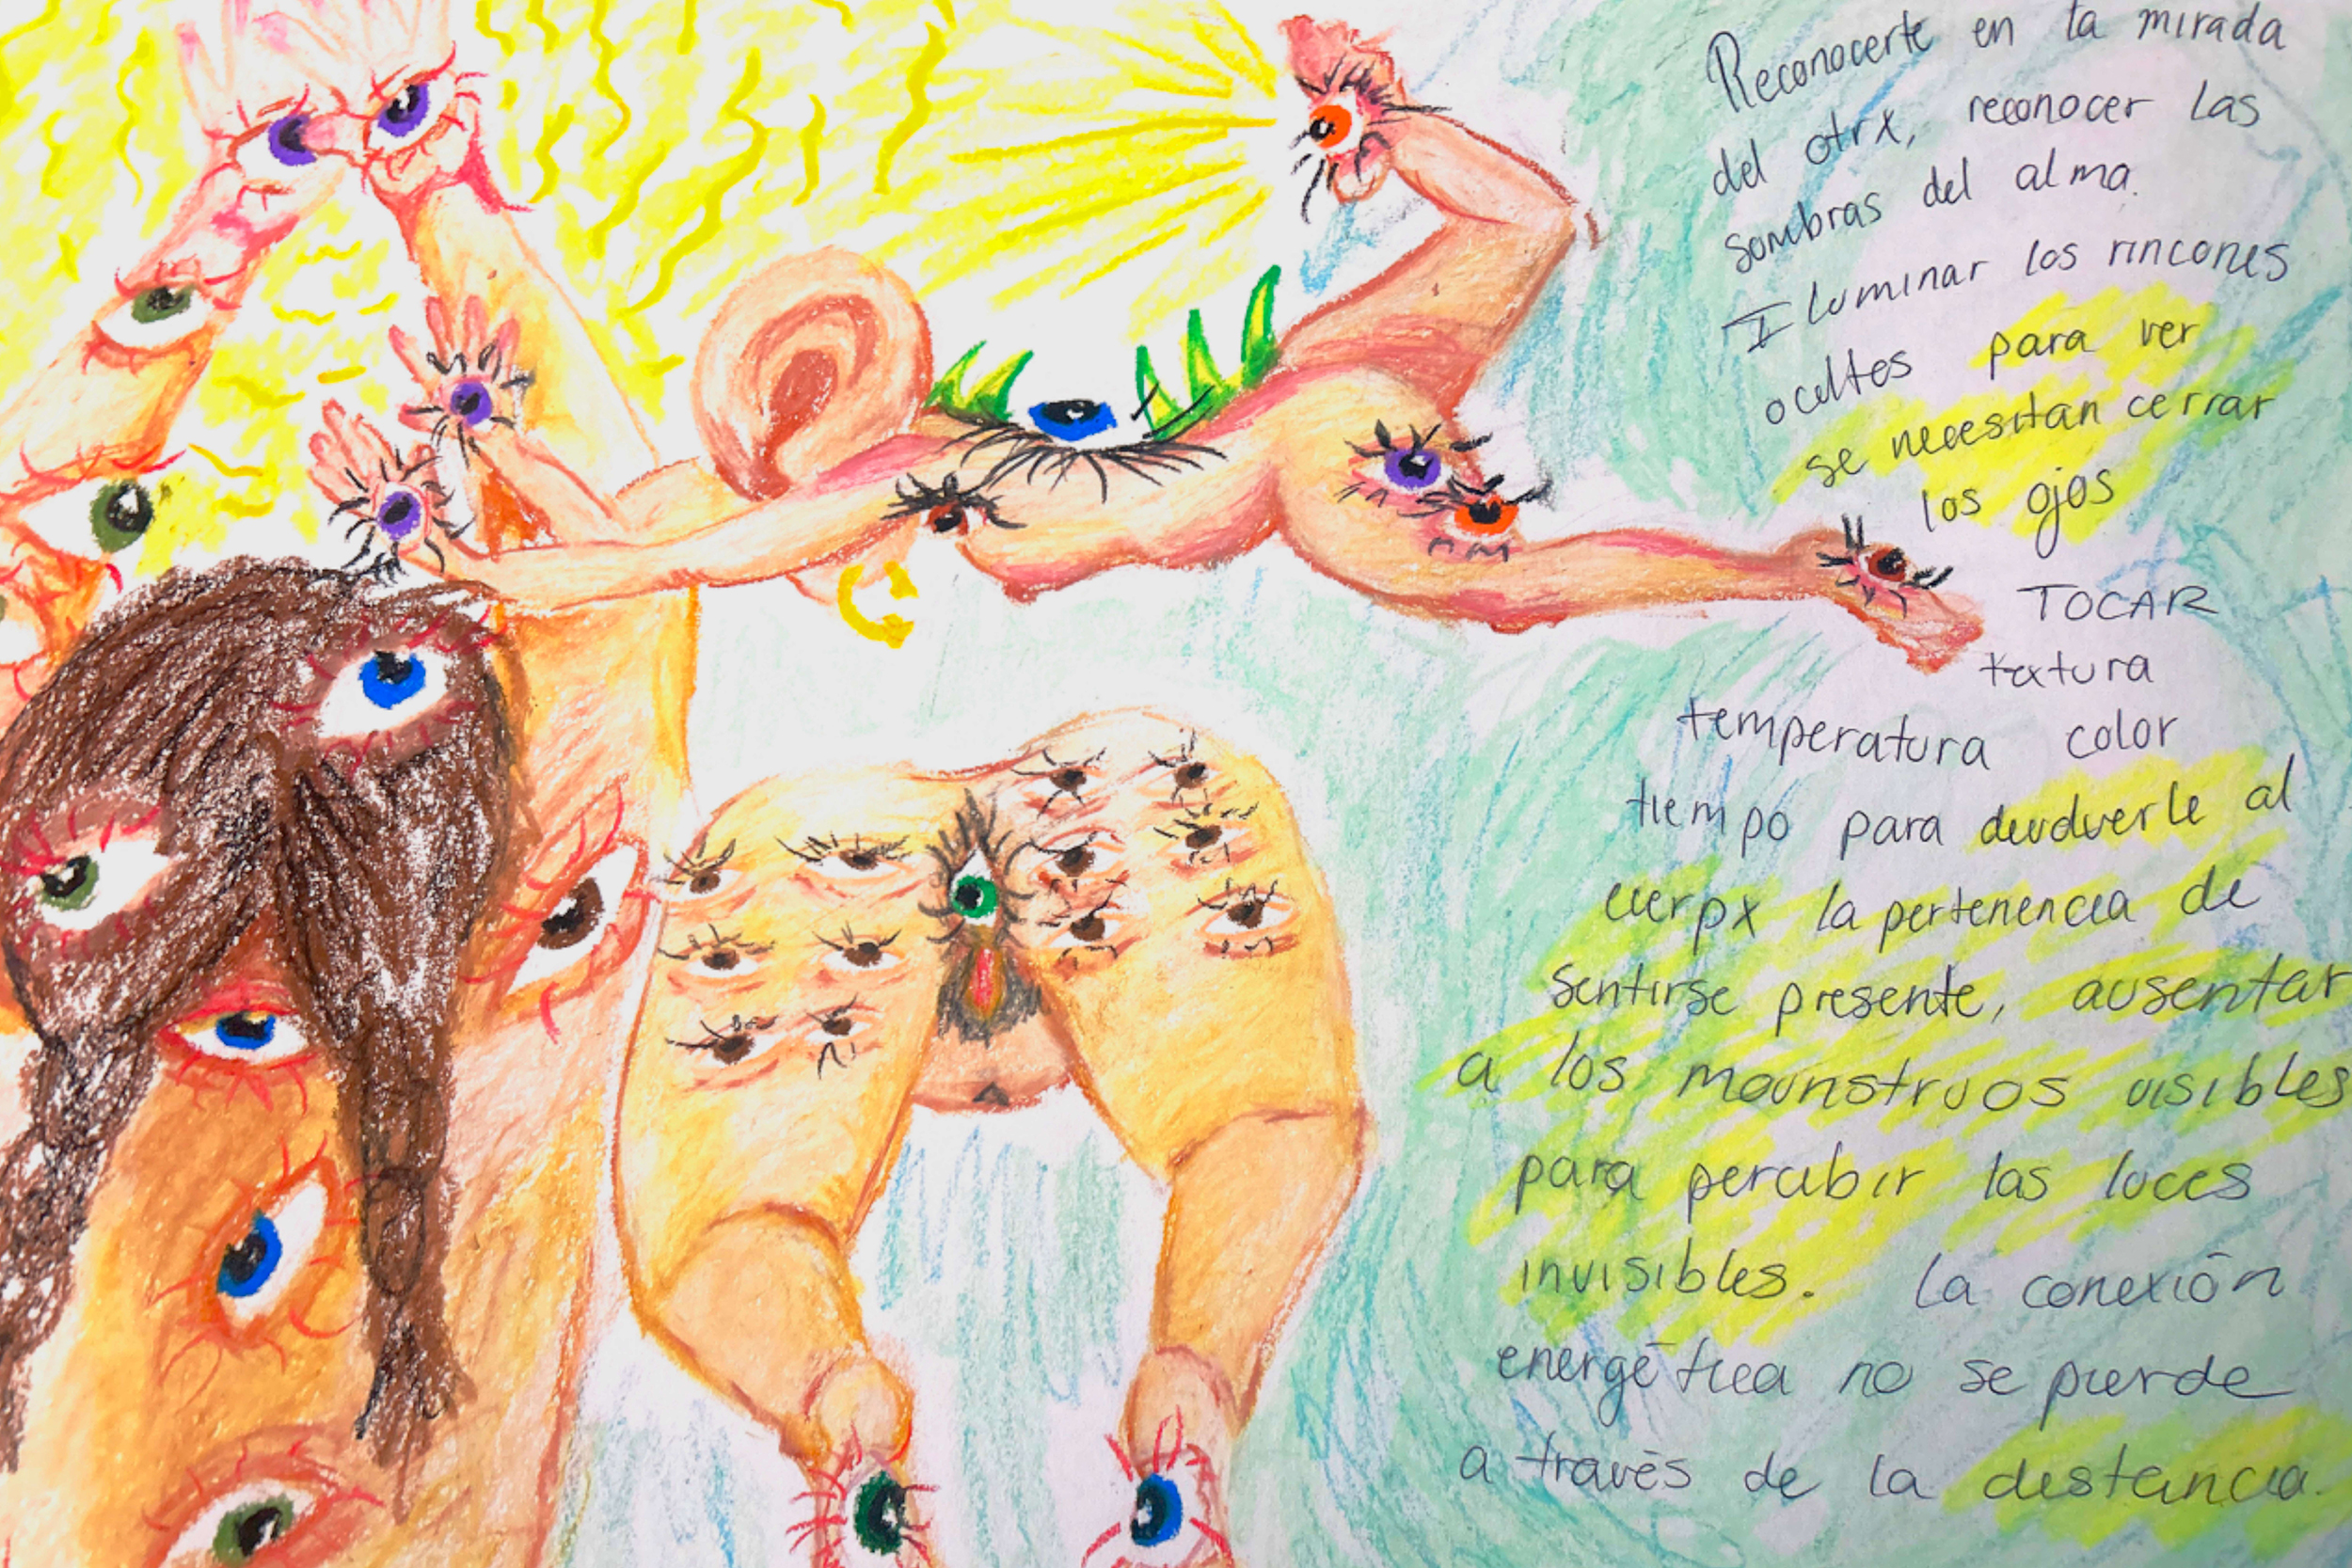 Reconocerte en la mirada
del otrx, reconocer las
sombras del alma.
Iluminar los rincones
ocultos para ver
se necesitan cerrar
los ojos
TOCAR
textura
temperatura color
tiempo para devolverle al
cuerpx la pertenencia de
sentirse presente, ausentar
a los mounstruos visibles
para percibir las luces
invisibles. La conexión
energética no se pierde
a través de la distancia.